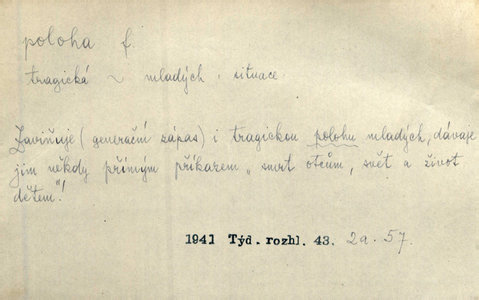 poloha f.
tragická ~ mladých, situace
Zaviňuje (generační zápas) i tragickou polohu mladých, dávaje
jim někdy přímým příkazem „smrt otcům, svět a život
dětem“!
1941 Týd. rozhl. 43. 2a. 57.